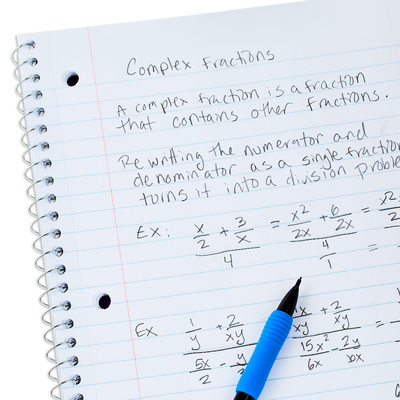 Complex Fractions
A complex fraction is a fraction
that contains other fractions.
Rewriting the numerator and
denominator as a single fraction
turns it into a division proble
Ex: (x/2 + 3/x)/4 = (x²/2x + 6/2x)/(4/1) =
Ex (1/y + 2/xy)/(5x/2 - y/ (x/xy + 2/xy)/(15x²/6x - 2y/6x) =